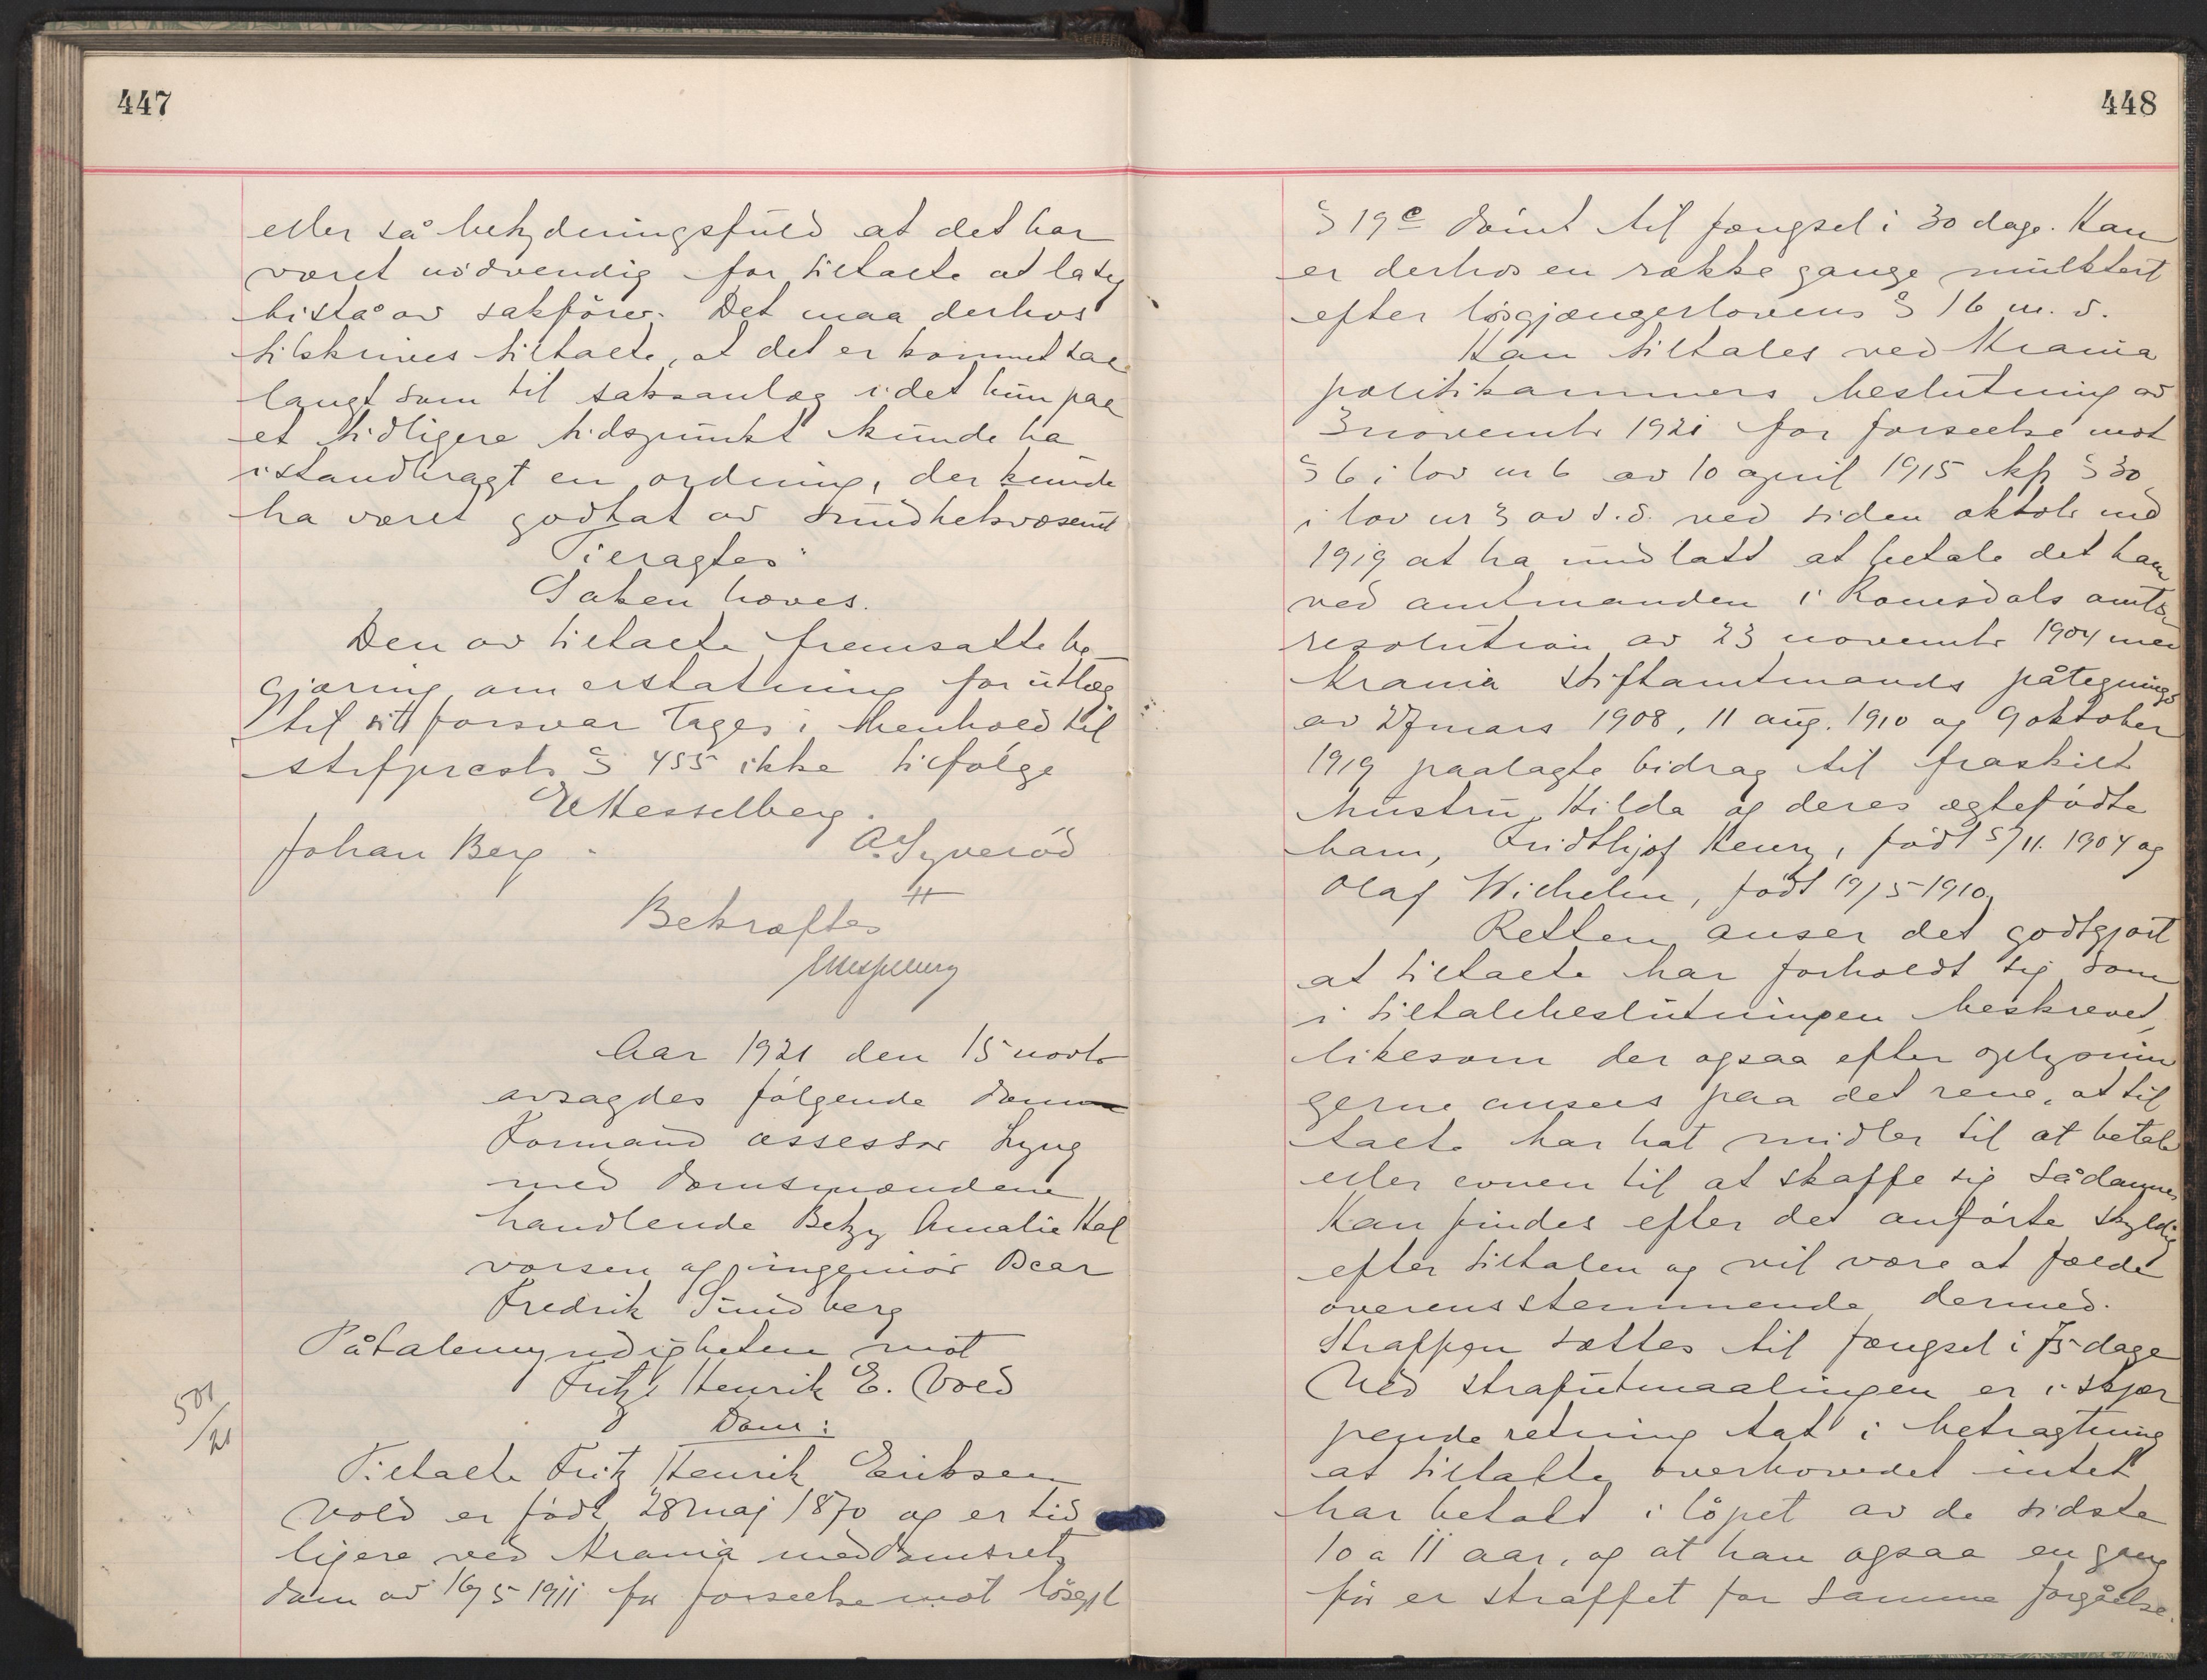 447
eller så betydningsfuld at det har
været nödvendig for tiltalte at la sig
bistå av sakförer. Det maa derhos
tilskrives tiltalte, at det er kommet saa
langt som til saksanlæg idet hun paa
et tidligere tidspunkt kunde ha
istandbragt en ordning, der kunde
ha været godtat av sundhetsvæsenet
Ti eragtes:
Saken hæves.
Den av tiltalte fremsatte be-
gjæring om erstatning for utlæg
til sit forsvar tages i henhold til
strfprcsl. § 455 ikke tilfølge
E Hesselberg.
Johan Berg. A. Syveröd
Bekræftes
EHesselberg
Aar 1921 den 15 novbr
avsagdes følgende dom
Formand assessor Lyng
med domsmændene
handlende Betzy Amalie Hal
vorsen og ingeniör Oscar
Fredrik Sundberg
Påtalemyndigheten mot
Fritz Henrik E. Vold
Dom:
501/21
Tiltalte Fritz Henrik Eriksen
Vold er född 28 maj 1870 og er tid
ligere ved Krania meddomsrets
dom av 16/5 1911 for forseelse mot lösgjl
448
§ 19 c dömt til fængsel i 30 dage. Han
er derhos en række gange mulktert
efter lösgjængerlovens § 16 m. v.
Han tiltales ved Krania
politikammers beslutning av
3 novembr 1921 for forseelse mot
§ 6 i lov nr 6 av 10 april 1915 kfr § 30
i lov nr 3 av s. d. ved siden oktobr md
1919 at ha undlatt at betale det ham
ved amtmanden i Romsdals amts
resolution av 23 novembr 1904 med
Krania stiftamtmands påtegnings
av 27 mars 1908, 11 aug. 1910 og 9 oktober
1919 paalagte bidrag til fraskilt
hustru Hilda og deres ægtefödte
barn, Fridthjof Henry, född 5/11. 1904 og
Olaf Wilhelm, född 19/5-1910.
Retten anser det godtgjort
at tiltalte har forholdt sig som
i tiltalebeslutningen beskrevet,
likesom der ogsaa efter oplysnin
gerne ansees paa det rene, at til
talte har hat midler til at betale
eller evnen til at skaffe sig sådanne
Han findes efter det anförte skyldig
efter tiltalen og vil være at fælde
overensstemmende dermed.
Straffen sættes til fængsel i 75 dage
Ved strafutmaalingen er i skjær
pende retning tat i betragtning
at tiltalte overhovedet intet
har betalt i löpet av de sidste
10 a 11 aar, og at han ogsaa en gang
för er straffet for samme forgåelse.